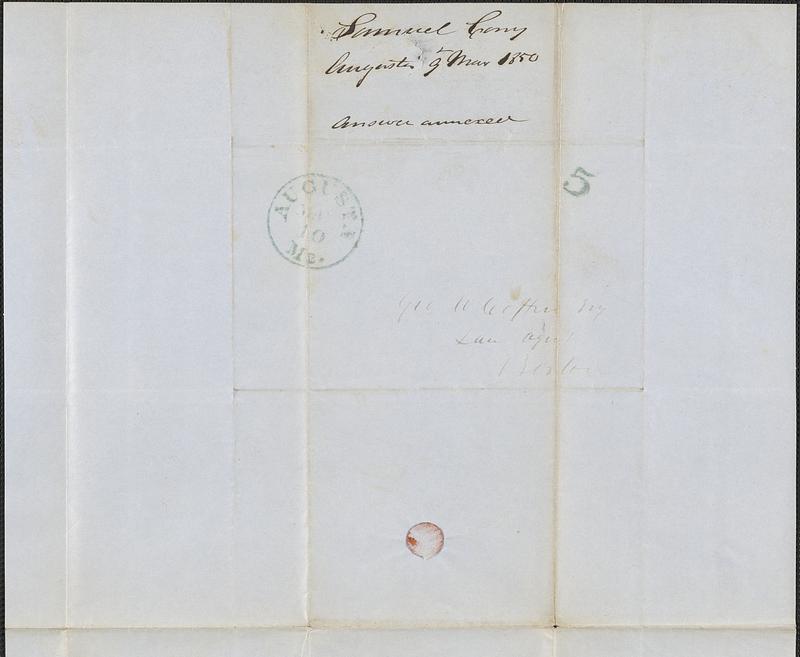 Samuel Cony
Augusta 9 Mar 1850
Answer annexed
AUGUSTA
10
Me.
5
Geo W Coffin Esq
Land Agent
Boston